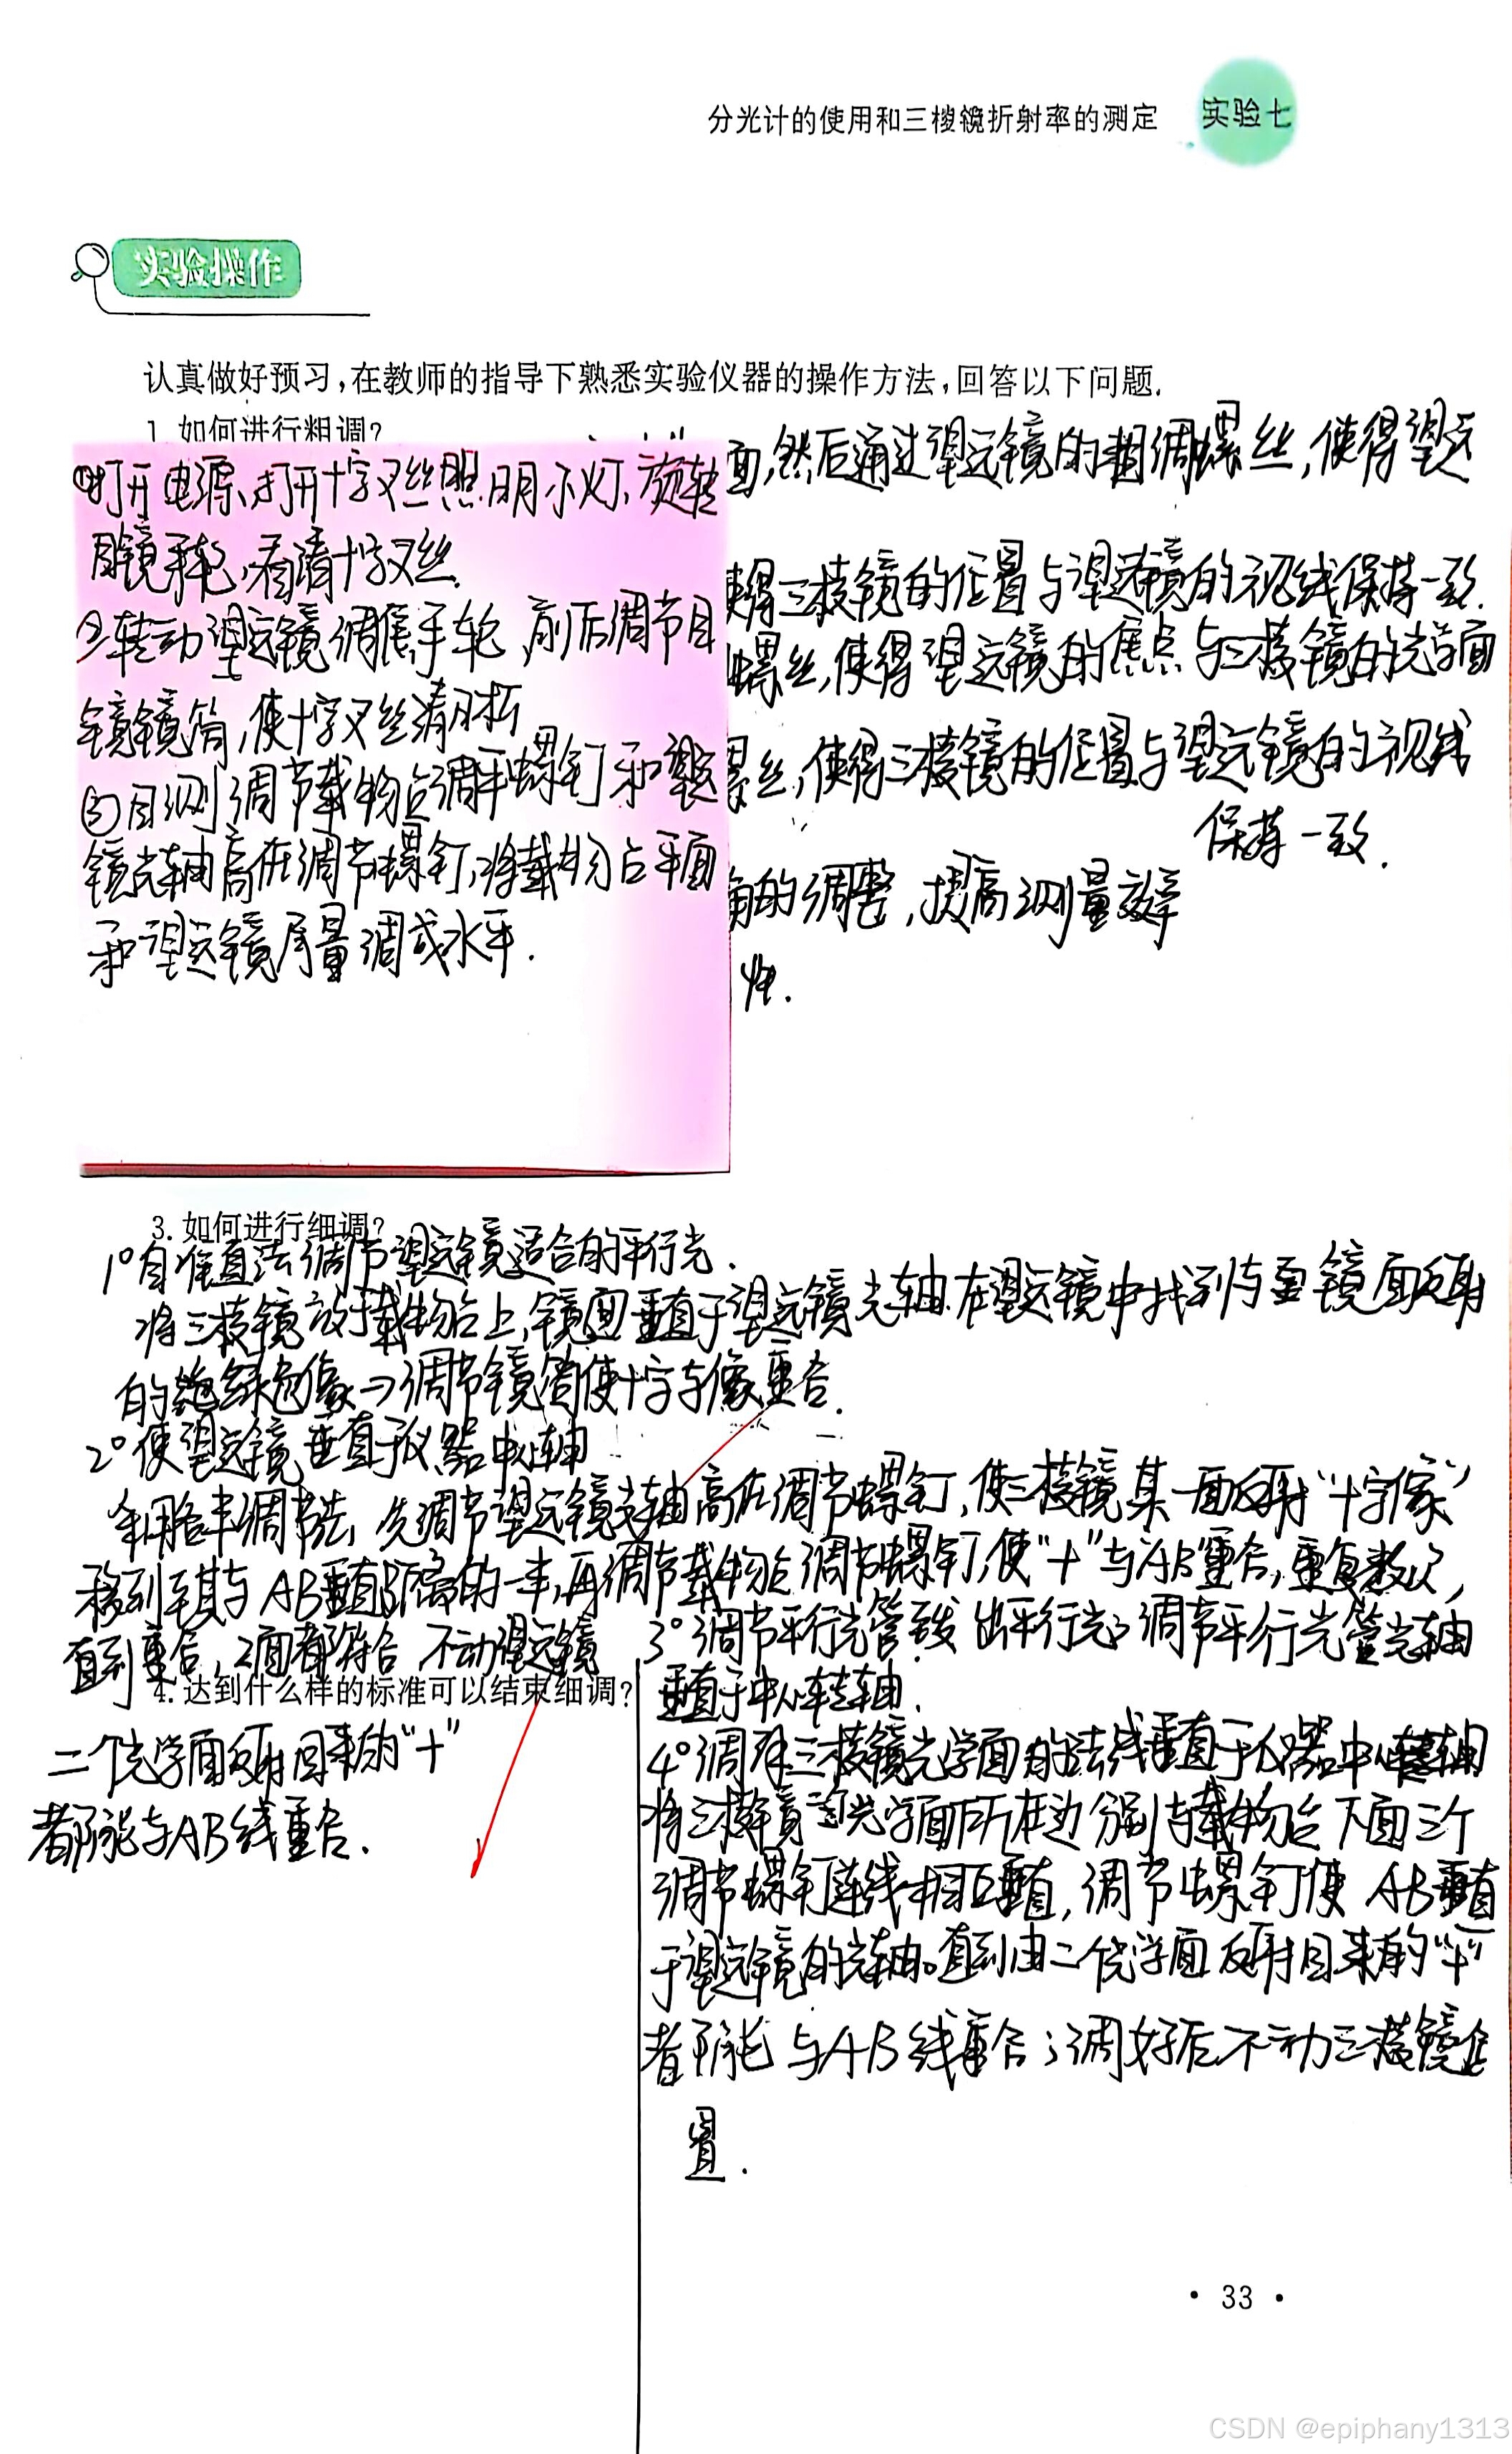 分光计的使用和三棱镜折射率的测定 实验七
实验操作
认真做好预习,在教师的指导下熟悉实验仪器的操作方法,回答以下问题.
1.如何进行粗调?
①打开电源、打开十字叉丝照明小灯、旋转
目镜手轮,看清十字叉丝.
②转动望远镜调焦手轮,前后调节目
镜镜筒,使十字叉丝清晰
③目测调节载物台调平螺钉和望远
镜光轴高低调节螺钉,将载物台平面
和望远镜尽量调成水平.
面,然后通过望远镜的粗调螺丝,使得望远
使得三棱镜的位置与望远镜的视线保持一致.
螺丝,使得望远镜的焦点与三棱镜的光学面
螺丝,使得三棱镜的位置与望远镜的视线
保持一致.
角的调整,提高测量效率
性.
3.如何进行细调?
1°自准直法调节望远镜适合的平行光.
将三棱镜放于载物台上,镜面垂直于望远镜光轴.在望远镜中找到与镜面反射
的绿色像→调节镜筒使十字与像重合.
2°使望远镜垂直于仪器中心轴
利用各半调节法,先调节望远镜光轴高低调节螺钉,使三棱镜某一面反射“十字像”
移到其与AB垂直距离的一半,再调节载物台调节螺钉,使“十”与“AB”重合,重复数次,
直到重合,2面都符合 不动望远镜
3°调节平行光管发出平行光;调节平行光管光轴
垂直于中心转轴.
4.达到什么样的标准可以结束细调?
二个光学面反射回来的“十”
都能与AB线重合.
4°调整三棱镜光学面的法线垂直于仪器中心转轴
将三棱镜光学面所在边分别与载物台下面三个
调节螺钉连线相互垂直,调节螺钉使AB垂直
于望远镜的光轴。直到由二个光学面反射回来的“十”
都能与AB线重合;调好后不动三棱镜位
置.
• 33 •
CSDN @epiphany1313